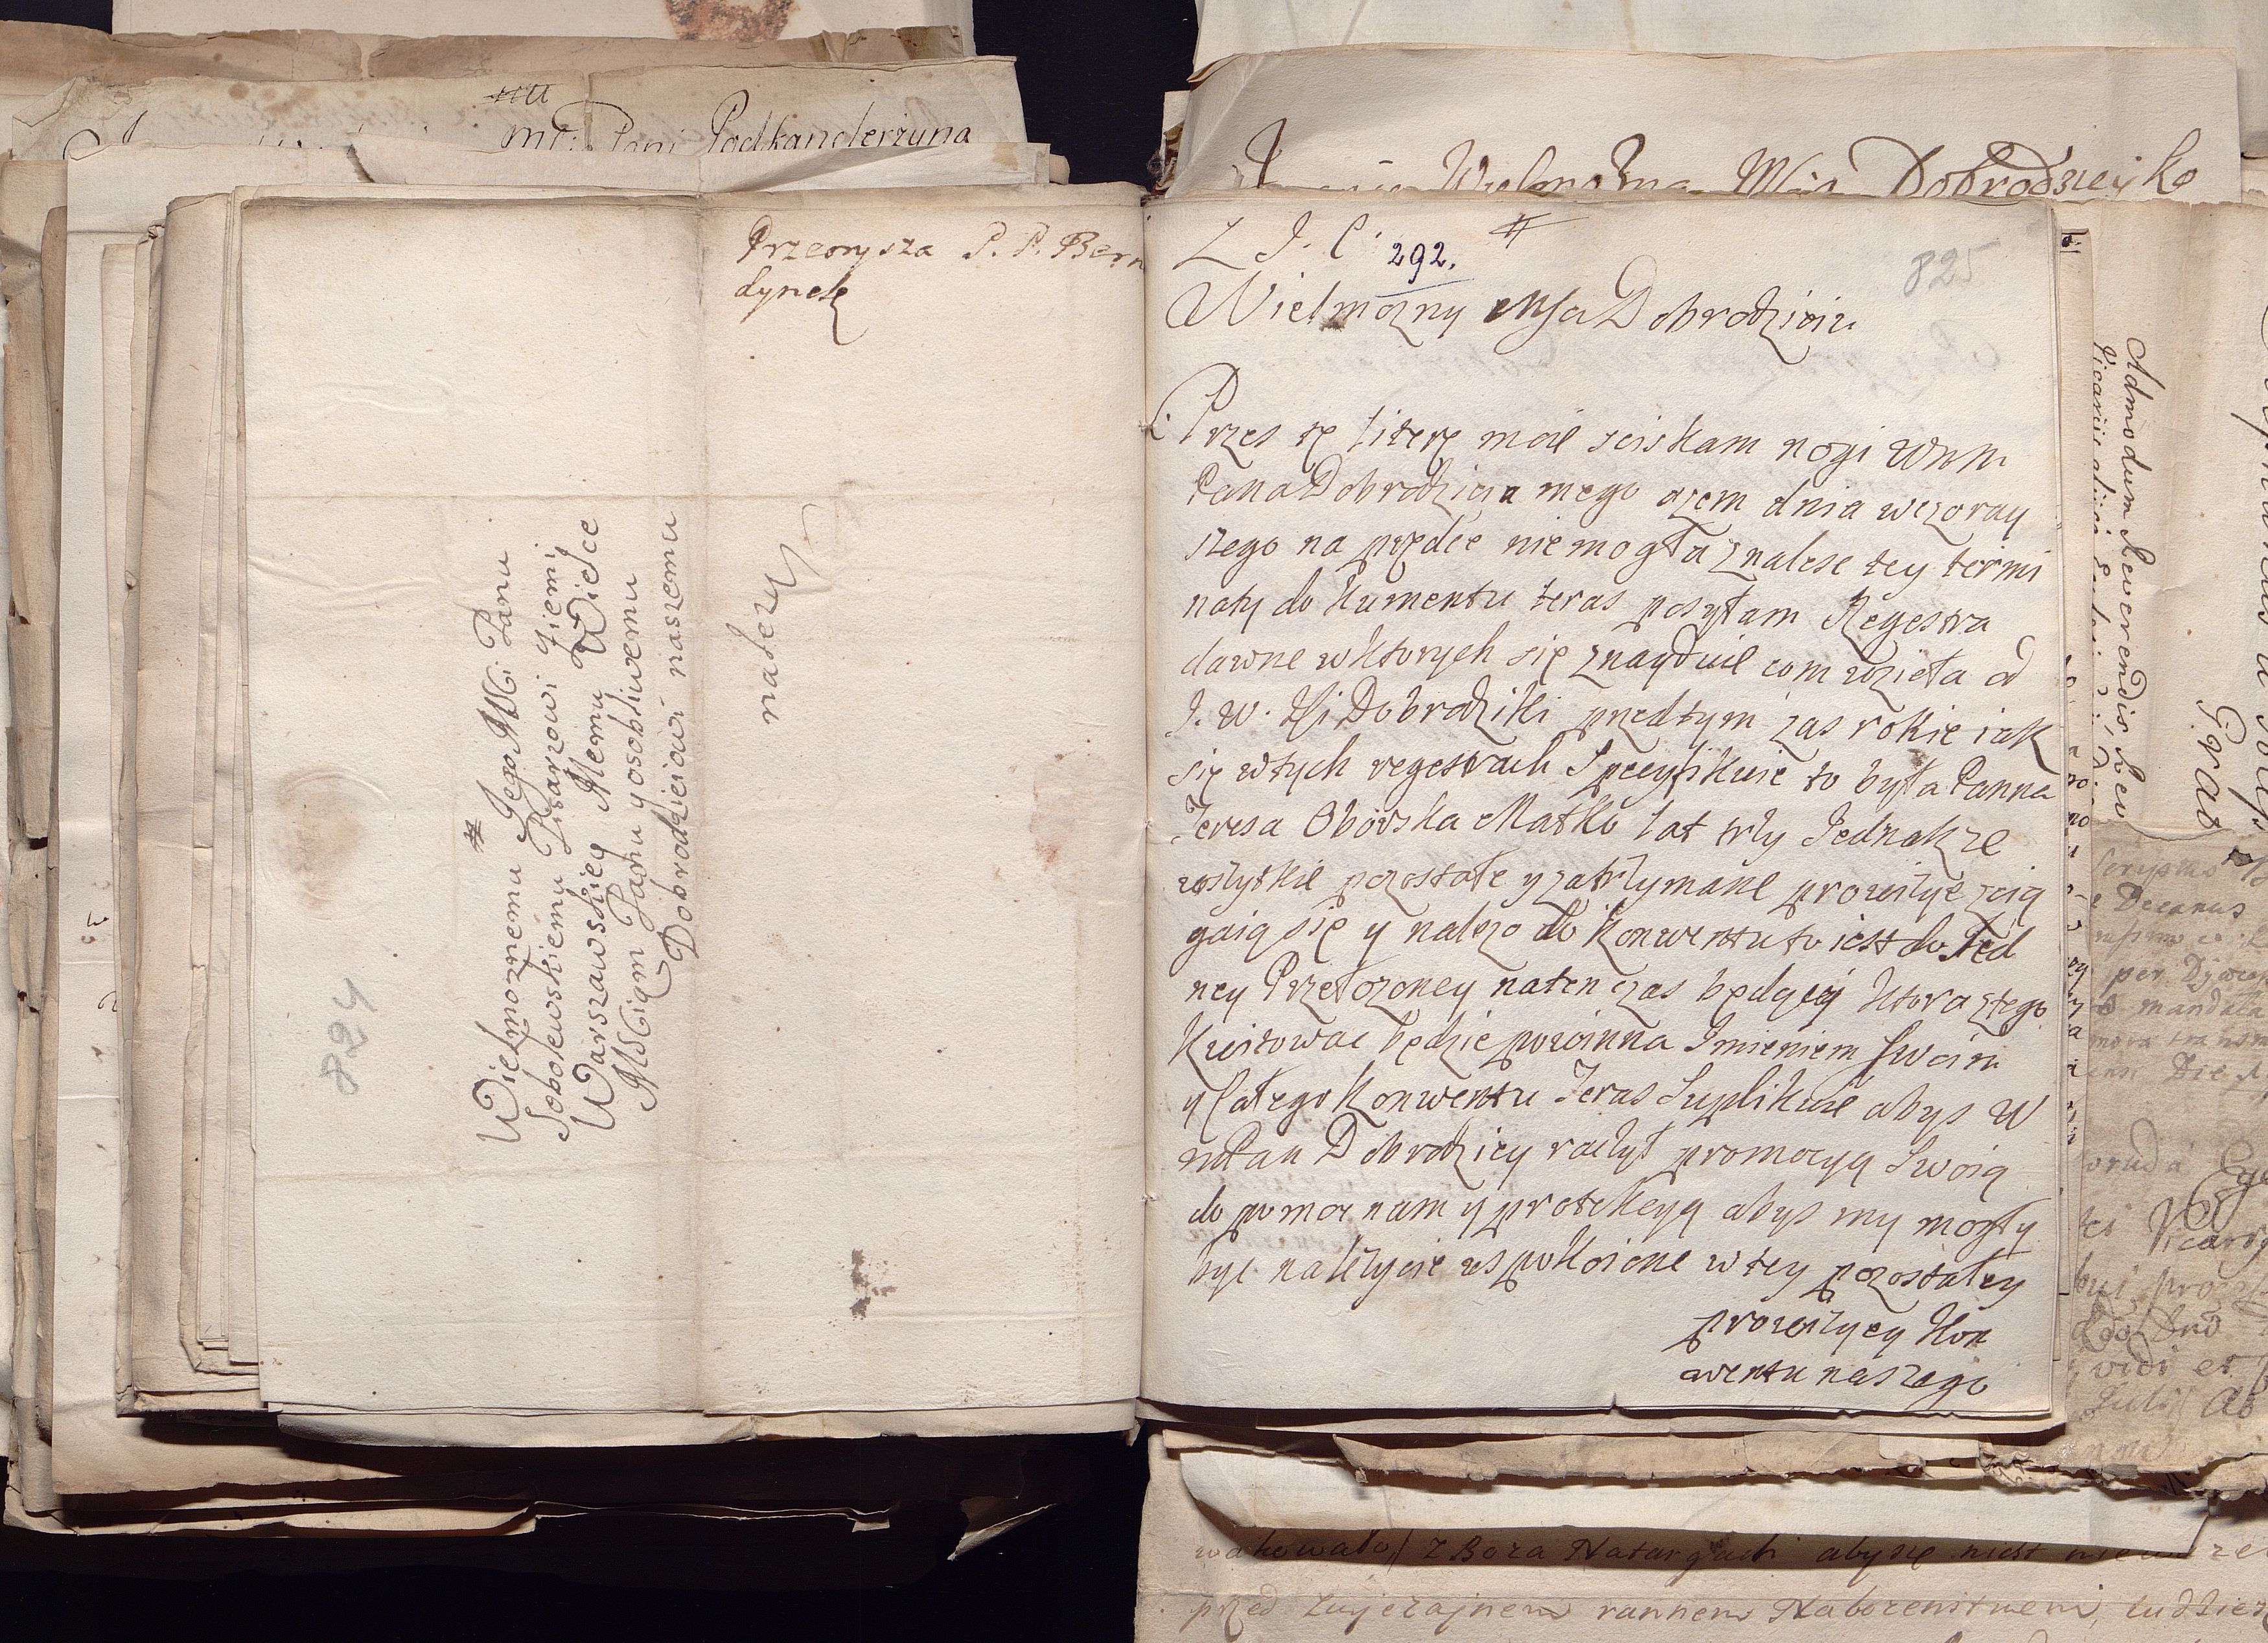 mci Pani Podkanclerzyna
Wielmożna Mcia Dobrodzieiko
Przeorysza P. P. Bern
dynek
należy
824
Wielmoznemu Jego Mci Panu
Sobolewskiemu Pisarzowi Ziemi
Warszawskiey Memu Wielce
Mciąm Panu y osobliwemu
Dobrodzieiowi naszemu
Z J. C. 292.
825
Wielmozny Msci Dobrodzieiu
Przes tę literę moie sciskam nogi Wmm
Pana Dobrodzieia mego ażem dnia wczoray
szego na prędce niemogła znalesc tey termi
naty do kumentu teras posyłam Regestra
dawne wktorych się znayduie com wzieła od
J. W. Hi Dobrodziki przedtym zas rokie iak
się wtych regestrach Specyfikuie to była Panna
Teresa Oborska Matko lat trzy Jednakze
wszytkie pozostałe y zatrzymane prowizye scią
gaią się y należo do konwentu to iest do Ted
ney Przełozoney naten czas będący ktora ztego
Kwitowac będzie powinna Imieniem swoim
y Całego Konwentu Teras Suplikuie abys W
mPan Dobrodziey raczył promocyą Swoią
do pomoc nam y protekcyą abys my mogły
byc nalezycie uspokoione w tey pozostałey
prowizycy Kon
wentu naszego
Admodum Reverendis, Rev
Grab
e Decanus
per Dyoce
mandata
Die
Vicary
vidi et
Julij
wakowało, z Boza Natargach abysię nicht
przed zwyczajnem rannem Nabozenstwem, ludzie